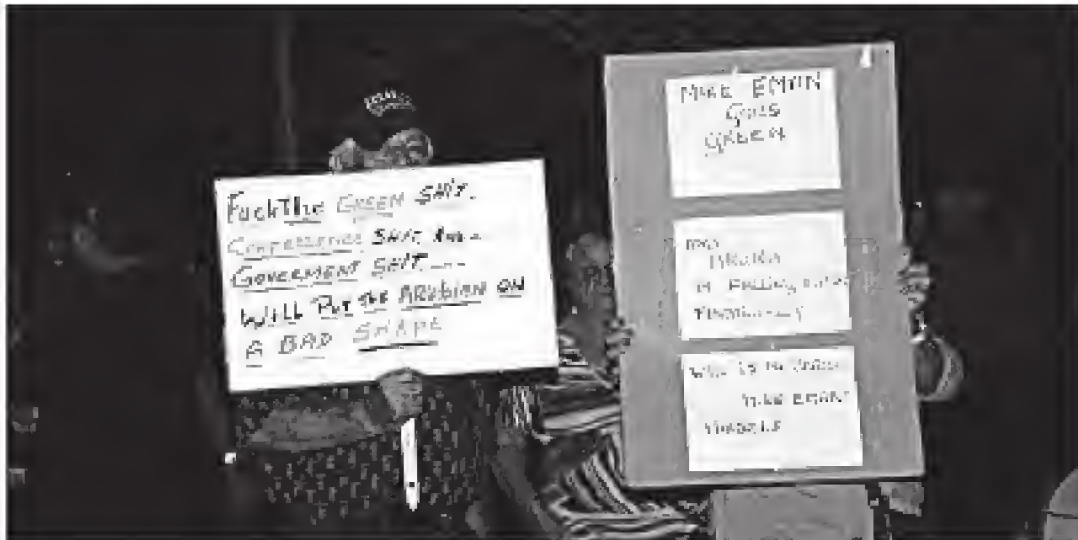 Fuck The GREEN SHIT.
CONFERENCE SHIT AND
GOVERMENT SHIT
WILL PUT THE ARUBIAN ON
A BAD SHAPE
MIKE EMAN
GOES
GREEN
ARUBA
IS Falling
WHO IS TO
MIKE EMAN